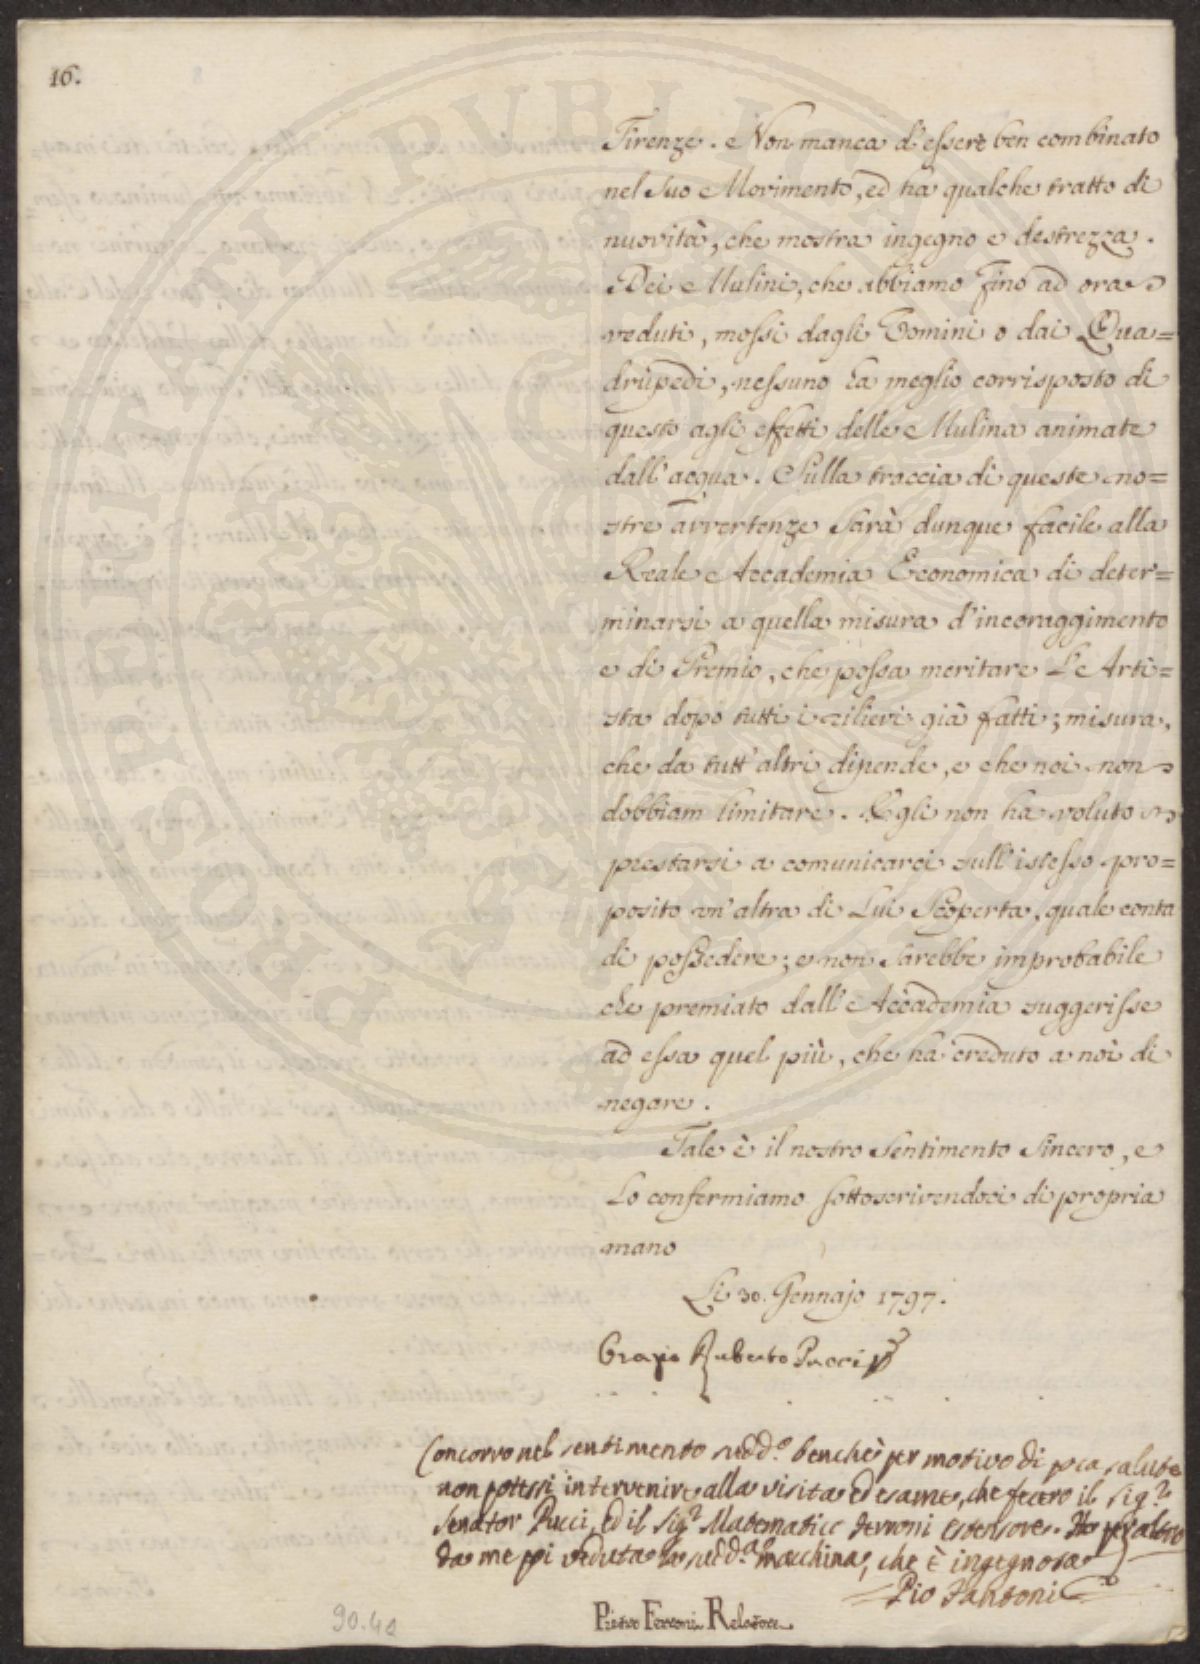 16.
Firenze. Non manca d'essere ben combinato
nel suo Movimento, ed ha qualche tratto di
nuovità, che mostra ingegno e destrezza.
Dei Mulini, che abbiamo fino ad ora
veduti, mossi dagli Uomini o dai Qua=
drupedi, nessuno ha meglio corrisposto di
questo agli effetti delle Mulina animate
dall'acqua. Sulla traccia di queste no=
stre avvertenze sarà dunque facile alla
Reale Accademia Economica di deter=
minarsi a quella misura d'incoraggimento
e di Premio, che possa meritare L'Arti=
sta dopo tutti i rilievi già fatti; misura,
che da tutt'altri dipende, e che noi non
dobbiam limitare. Egli non ha voluto
prestarsi a comunicarci sull'istesso pro=
posito un'altra di Lui Scoperta, quale conta
di possedere; e non sarebbe improbabile
che premiato dall'Accademia suggerisse
ad essa quel più, che ha creduto a noi di
negare.
Tale è il nostro sentimento sincero, e
Lo confermiamo sottoscrivendoci di propria
mano
Li 30. Gennajo 1797.
Orazio Ruberto Pucci
Concorro nel sentimento sudd.o benchè per motivo di pca salute
non potessi intervenire alla visita ed esame, che fecero il sig.r
Senator Pucci, ed il Sig.r Matematico Ferroni estensore. Ho per altro
da me poi veduta la sudd.a macchina, che è ingegnosa
Pio Fantoni
Pietro Ferroni Relatore
90.42
PROSPERITATI PUBLICAE